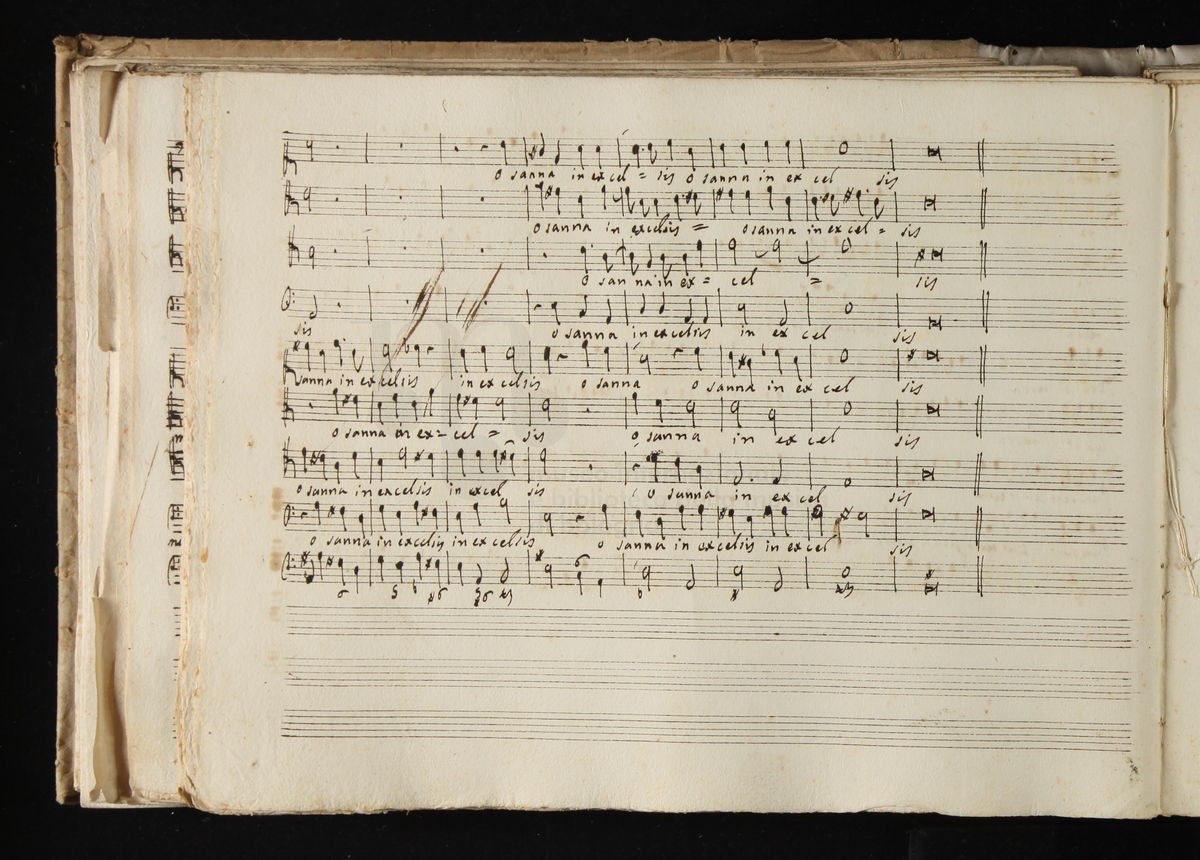 o sanna in ex cel = sis o sanna in ex cel sis
o sanna in excelsis = o sanna in ex cel = sis
o san na in ex = cel = sis
sis o sanna in excelsis in ex cel sis
sanna in excelsis in ex celsis o sanna o sanna in ex cel sis
o sanna in ex = cel = sis o sanna in ex cel sis
o sanna in excelsis in excel sis o sanna in ex cel sis
o sanna in excelsis in ex celsis o sanna in excelsis in ex cel sis